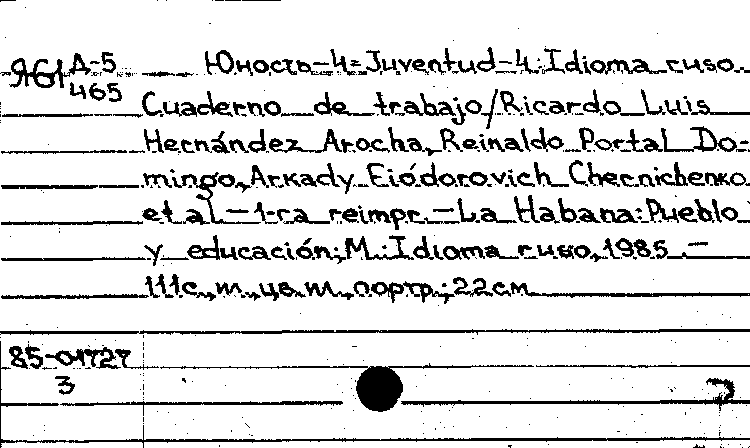 Яб1 Д-5 Юность-4=Juventud-4: Idioma ruso.
465 Cuaderno de trabajo/Ricardo Luis
Hernández Arocha, Reinaldo Portal Do-
mingo, Arkady Fiódorovich Chernichenko
et al.-1-ra reimpr.-La Habana: Pueblo
y educación; M.: Idioma ruso, 1985.-
111с., т., цв.т., портр.; 22см
85-01727
3